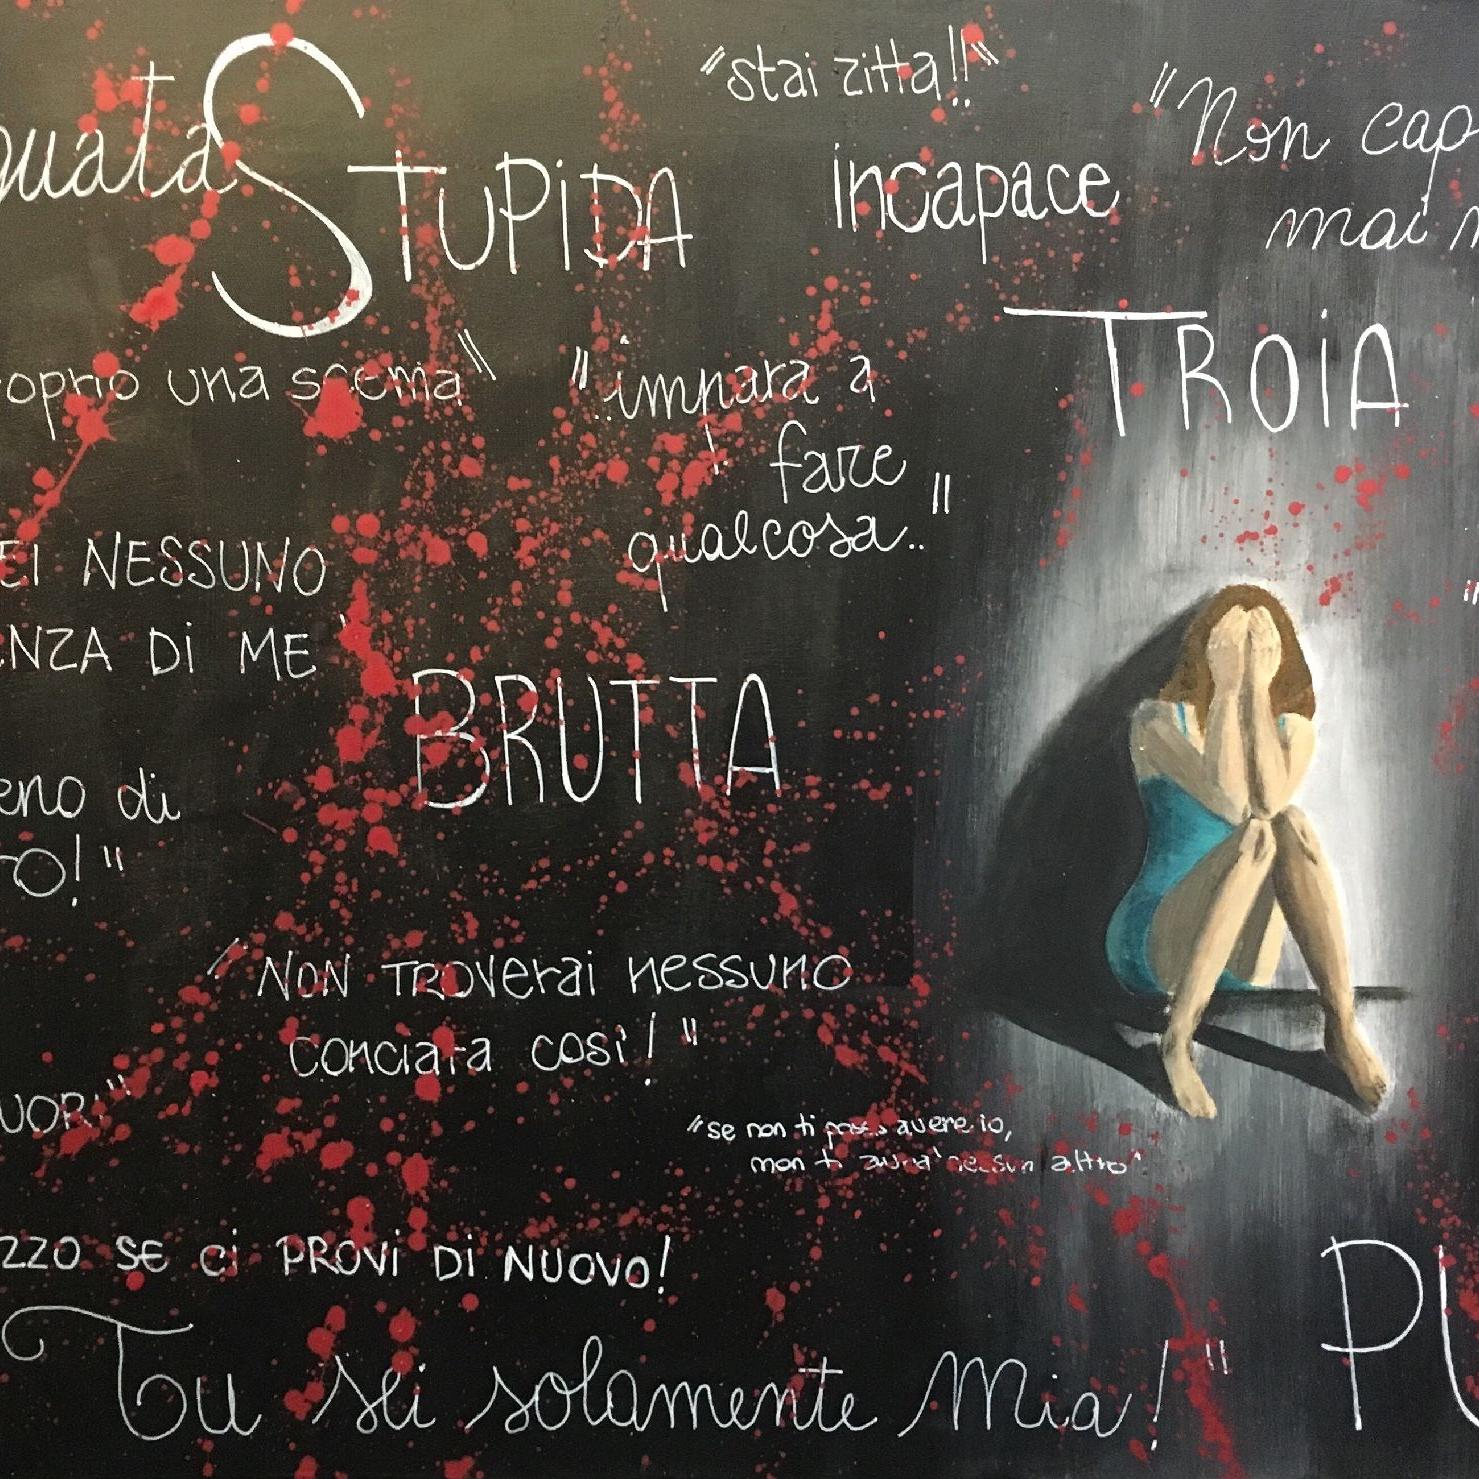 "stai zitta!!"
"Non cap
quata STUPIDA
incapace
mai
TROIA
oprio una scema"
"impara a
fare
qualcosa.."
EI NESSUNO
ENZA DI ME"
BRUTTA
eno di
RO!"
"NON TROVERAI NESSUNO
CONCIATA COSì!"
UORI"
"se non ti posso avere io,
non ti avrà nessun altro"
ZZO SE CI PROVI DI NUOVO!
Tu sei solamente mia!"
PU